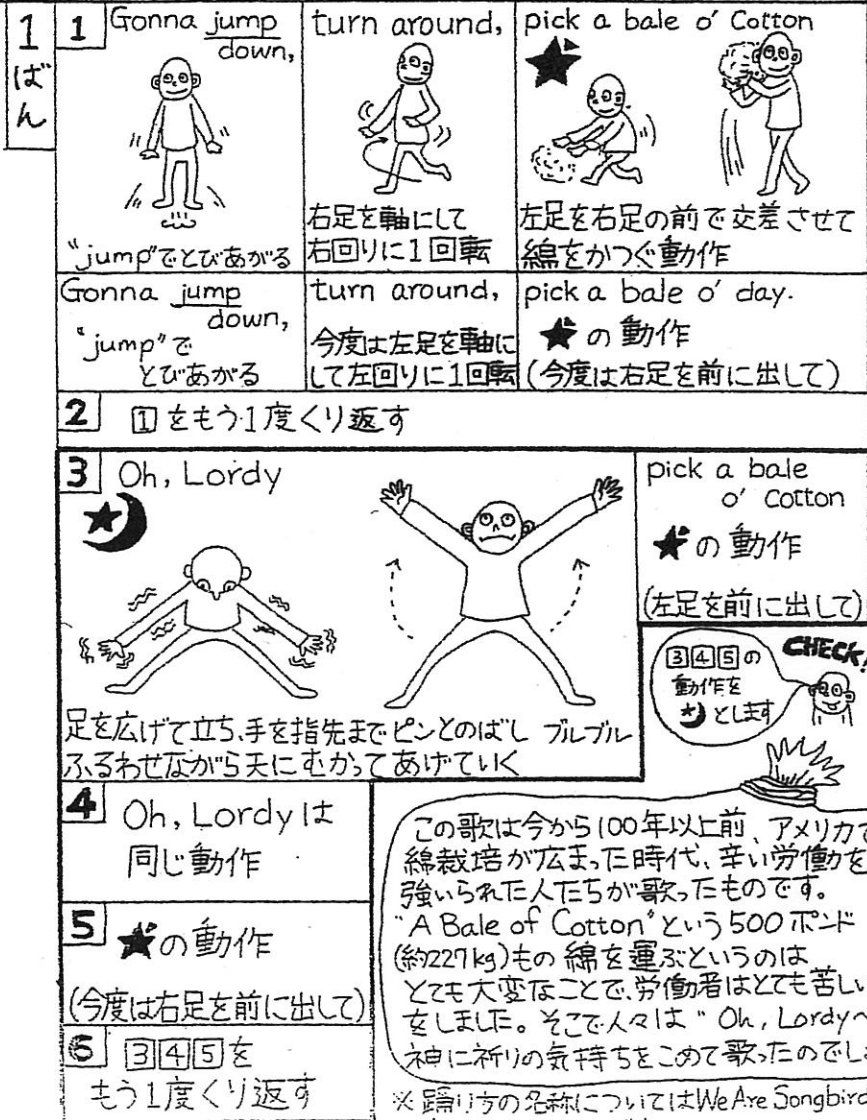 1ばん
1 Gonna jump
down,
"jump"でとびあがる
turn around,
右足を軸にして
右回りに1回転
pick a bale o' Cotton
左足を右足の前で交差させて
綿をかつぐ動作
Gonna jump
down,
"jump"で
とびあがる
turn around,
今度は左足を軸に
して左回りに1回転
pick a bale o' day.
★の動作
(今度は右足を前に出して)
2 1をもう1度くり返す
3 Oh, Lordy
足を広げて立ち、手を指先までピンとのばし ブルブル
ふるわせながら天にむかってあげていく
pick a bale
o' Cotton
★の動作
(左足を前に出して)
345の
動作を
とします
CHECK!
4 Oh, Lordyは
同じ動作
5 ★の動作
(今度は右足を前に出して)
6 345を
もう1度くり返す
この歌は今から100年以上前、アメリカで
綿栽培が広まった時代、辛い労働を
強いられた人たちが歌ったものです。
"A Bale of Cotton"という500ポンド
(約227kg)もの綿を運ぶというのは
とても大変なことで、労働者はとても苦しい
をしました。そこで人々は "Oh, Lordy〜
神に祈りの気持ちをこめて歌ったのでし
※踊り方の名称についてはWe Are Songbird